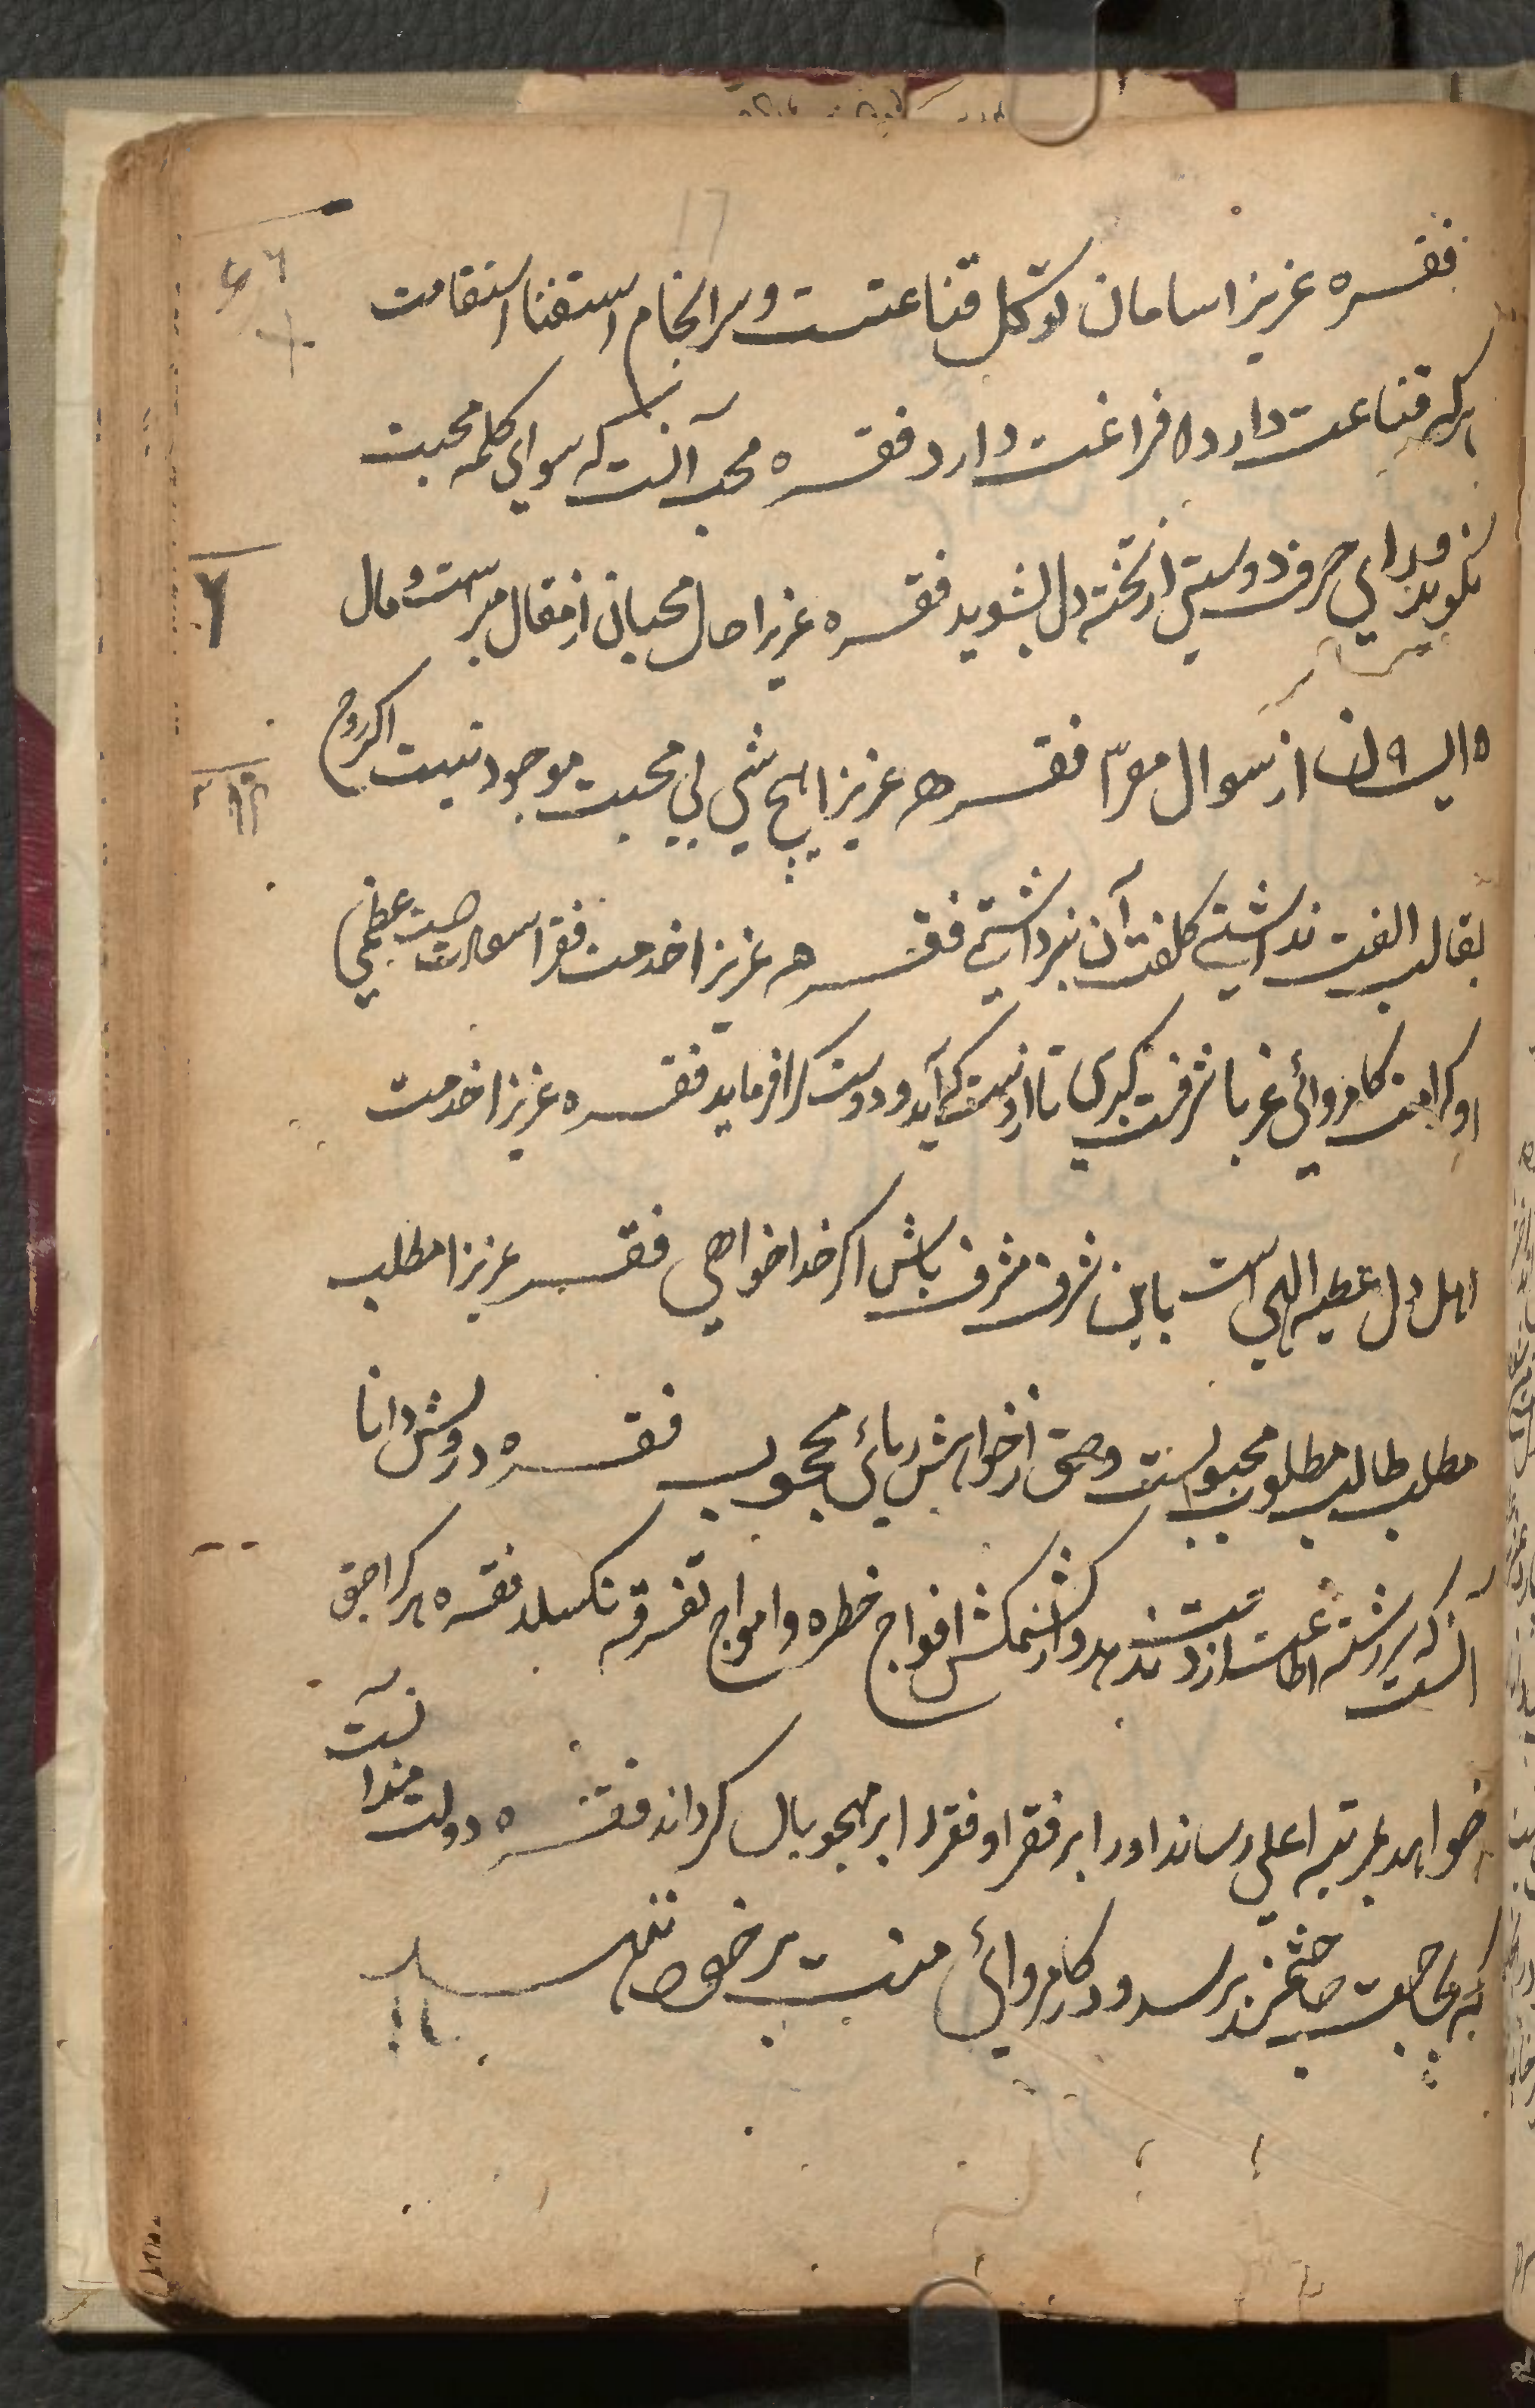 فقره عزیزا سامان توکل قناعتست و سرانجام استغنا استقامت
هرکه قناعت دارد فراغت دارد فقره محب آنست که سوای کلمه محبت
نگوید و برای حرف دوستی از تخته دل بشوید فقره عزیزا حال محبان از مقال مبراست و مال
ایشان از سوال معرّا فقره عزیزا هیچ شی بی محبت موجود نیست اکر روح
بقالب الفت نداشتی کلفت آن نبرداشتی فقره عزیزا خدمت فقرا سعادت عظمی
و کرامت کامروائی غربا شرفت کبری تا از دست که آید و دوست کرا فرماید فقره عزیزا خدمت
اهل دل عطیه الهی است باین شرف مشرف باش اکر خدا خواهی فقره عزیزا مطلب
مطلب طالب مطلوب محبوبست و حق از خواهش ریائی محجوب فقره درویش دانا
آنست که سررشته اطاعت از دست ندهد و از کشمکش افواج خطره و امواج تفرقه نکسلد فقره هر کرا حق
خواهد بمرتبه اعلی رساند او را بر فقرا و فقرا را بر همچو بال کرداند فقره دولتمند آنست
که بحاجت حاجتمند برسد و در کامروائی منت بر خود نهد